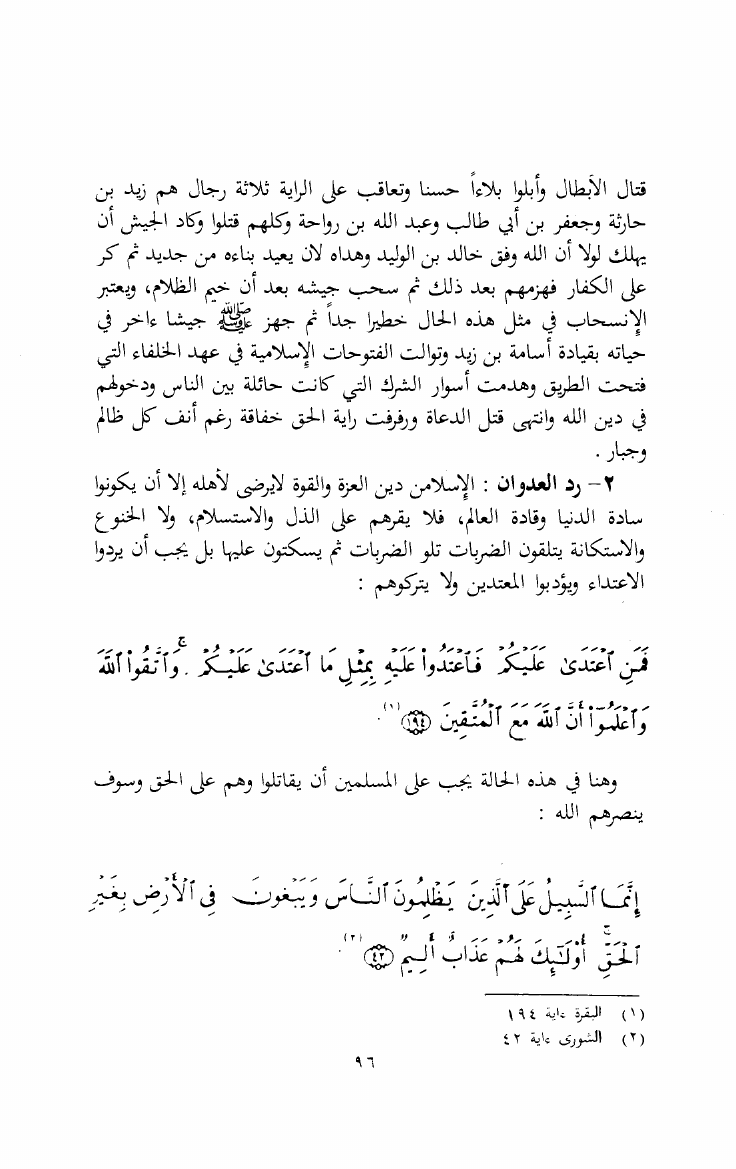 قتال الأبطال وأبلوا بلاءاً حسنا وتعاقب على الراية ثلاثة رجال هم زيد بن
حارثة وجعفر بن أبي طالب وعبد الله بن رواحة وكلهم قتلوا وكاد الجيش أن
يهلك لولا أن الله وفق خالد بن الوليد وهداه لان يعيد بناءه من جديد ثم كر
على الكفار فهزمهم بعد ذلك ثم سحب جيشه بعد أن خيم الظلام، ويعتبر
الإنسحاب في مثل هذه الحال خطيرا جداً ثم جهز ﷺ جيشا ءاخر في
حياته بقيادة أسامة بن زيد وتوالت الفتوحات الإسلامية في عهد الخلفاء التي
فتحت الطريق وهدمت أسوار الشرك التي كانت حائلة بين الناس ودخولهم
في دين الله وانتهى قتل الدعاة ورفرفت راية الحق خفاقة رغم أنف كل ظالم
وجبار .
٢- رد العدوان : الإسلامن دين العزة والقوة لايرضى لأهله إلا أن يكونوا
سادة الدنيا وقادة العالم، فلا يقرهم على الذل والاستسلام، ولا الخنوع
والاستكانة يتلقون الضربات تلو الضربات ثم يسكتون عليها بل يجب أن يردوا
الاعتداء ويؤدبوا المعتدين ولا يتركوهم :
فَمَنِ ٱعْتَدَىٰ عَلَيْكُمْ فَٱعْتَدُوا۟ عَلَيْهِ بِمِثْلِ مَا ٱعْتَدَىٰ عَلَيْكُمْ ۚ وَٱتَّقُوا۟ ٱللَّهَ
وَٱعْلَمُوٓا۟ أَنَّ ٱللَّهَ مَعَ ٱلْمُتَّقِينَ ﴿١٩٤﴾ (١).
وهنا في هذه الحالة يجب على المسلمين أن يقاتلوا وهم على الحق وسوف
ينصرهم الله :
إِنَّمَا ٱلسَّبِيلُ عَلَى ٱلَّذِينَ يَظْلِمُونَ ٱلنَّاسَ وَيَبْغُونَ فِى ٱلْأَرْضِ بِغَيْرِ
ٱلْحَقِّ ۚ أُو۟لَـٰٓئِكَ لَهُمْ عَذَابٌ أَلِيمٌ ﴿٤٢﴾ (٢).
(١) البقرة ءاية ١٩٤
(٢) الشورى ءاية ٤٢
٩٦